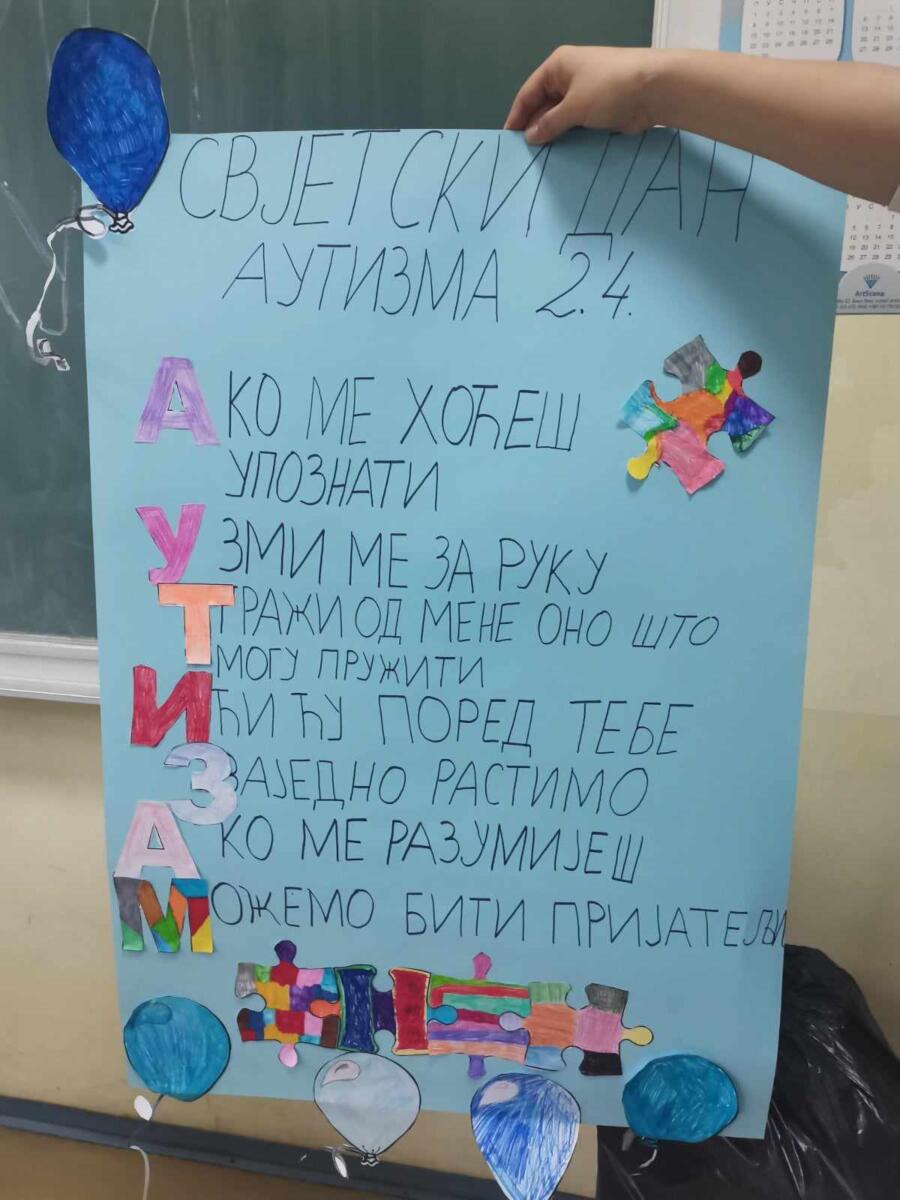 СВЈЕТСКИ ДАН
АУТИЗМА 2.4.
АКО МЕ ХОЋЕШ
УПОЗНАТИ
УЗМИ МЕ ЗА РУКУ
ТТРАЖИ ОД МЕНЕ ОНО ШТО
МОГУ ПРУЖИТИ
ИЋИ ЋУ ПОРЕД ТЕБЕ
ЗЗАЈЕДНО РАСТИМО
АКО МЕ РАЗУМИЈЕШ
МОЖЕМО БИТИ ПРИЈАТЕЉИ
ArtScena